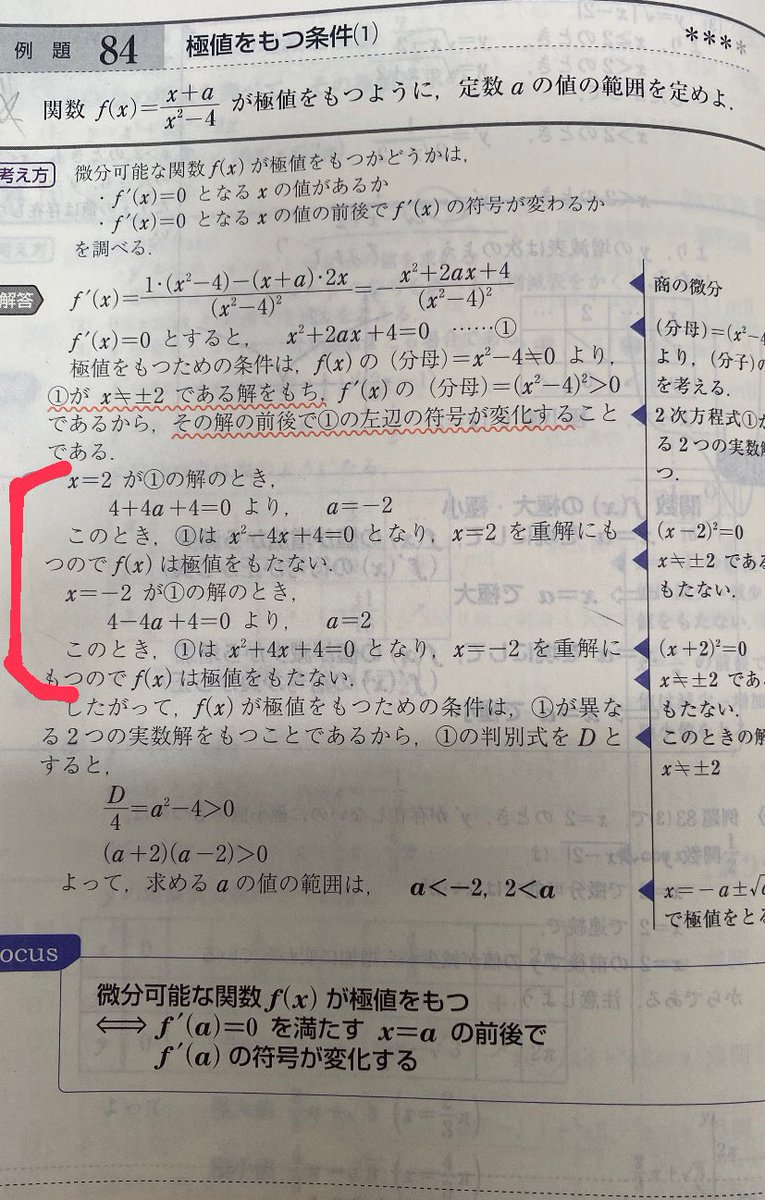 例題 84 極値をもつ条件(1) ****
関数 f(x)=(x+a)/(x²−4) が極値をもつように，定数 a の値の範囲を定めよ．
考え方 微分可能な関数 f(x) が極値をもつかどうかは，
・f′(x)=0 となる x の値があるか
・f′(x)=0 となる x の値の前後で f′(x) の符号が変わるか
を調べる．
解答 f′(x)=(1・(x²−4)−(x+a)・2x)/(x²−4)²=−(x²+2ax+4)/(x²−4)²
f′(x)=0 とすると， x²+2ax+4=0 ……①
極値をもつための条件は，f(x) の（分母）=x²−4≒0 より，
①が x≒±2 である解をもち，f′(x) の（分母）=(x²−4)²>0
であるから，その解の前後で①の左辺の符号が変化すること
である．
x=2 が①の解のとき，
4+4a+4=0 より， a=−2
このとき，①は x²−4x+4=0 となり，x=2 を重解にも
つので f(x) は極値をもたない．
x=−2 が①の解のとき，
4−4a+4=0 より， a=2
このとき，①は x²+4x+4=0 となり，x=−2 を重解に
もつので f(x) は極値をもたない．
したがって，f(x) が極値をもつための条件は，①が異な
る2つの実数解をもつことであるから，①の判別式を D と
すると，
D/4=a²−4>0
(a+2)(a−2)>0
よって，求める a の値の範囲は， a<−2, 2<a
商の微分
（分母）=(x²−4
より，（分子）の
を考える．
2次方程式①が
る2つの実数解
つ．
(x−2)²=0
x≒±2 である
もたない．
(x+2)²=0
x≒±2 であ
もたない．
このときの解
x≒±2
x=−a±√
で極値をとる
ocus
微分可能な関数 f(x) が極値をもつ
⟺ f′(a)=0 を満たす x=a の前後で
f′(a) の符号が変化する